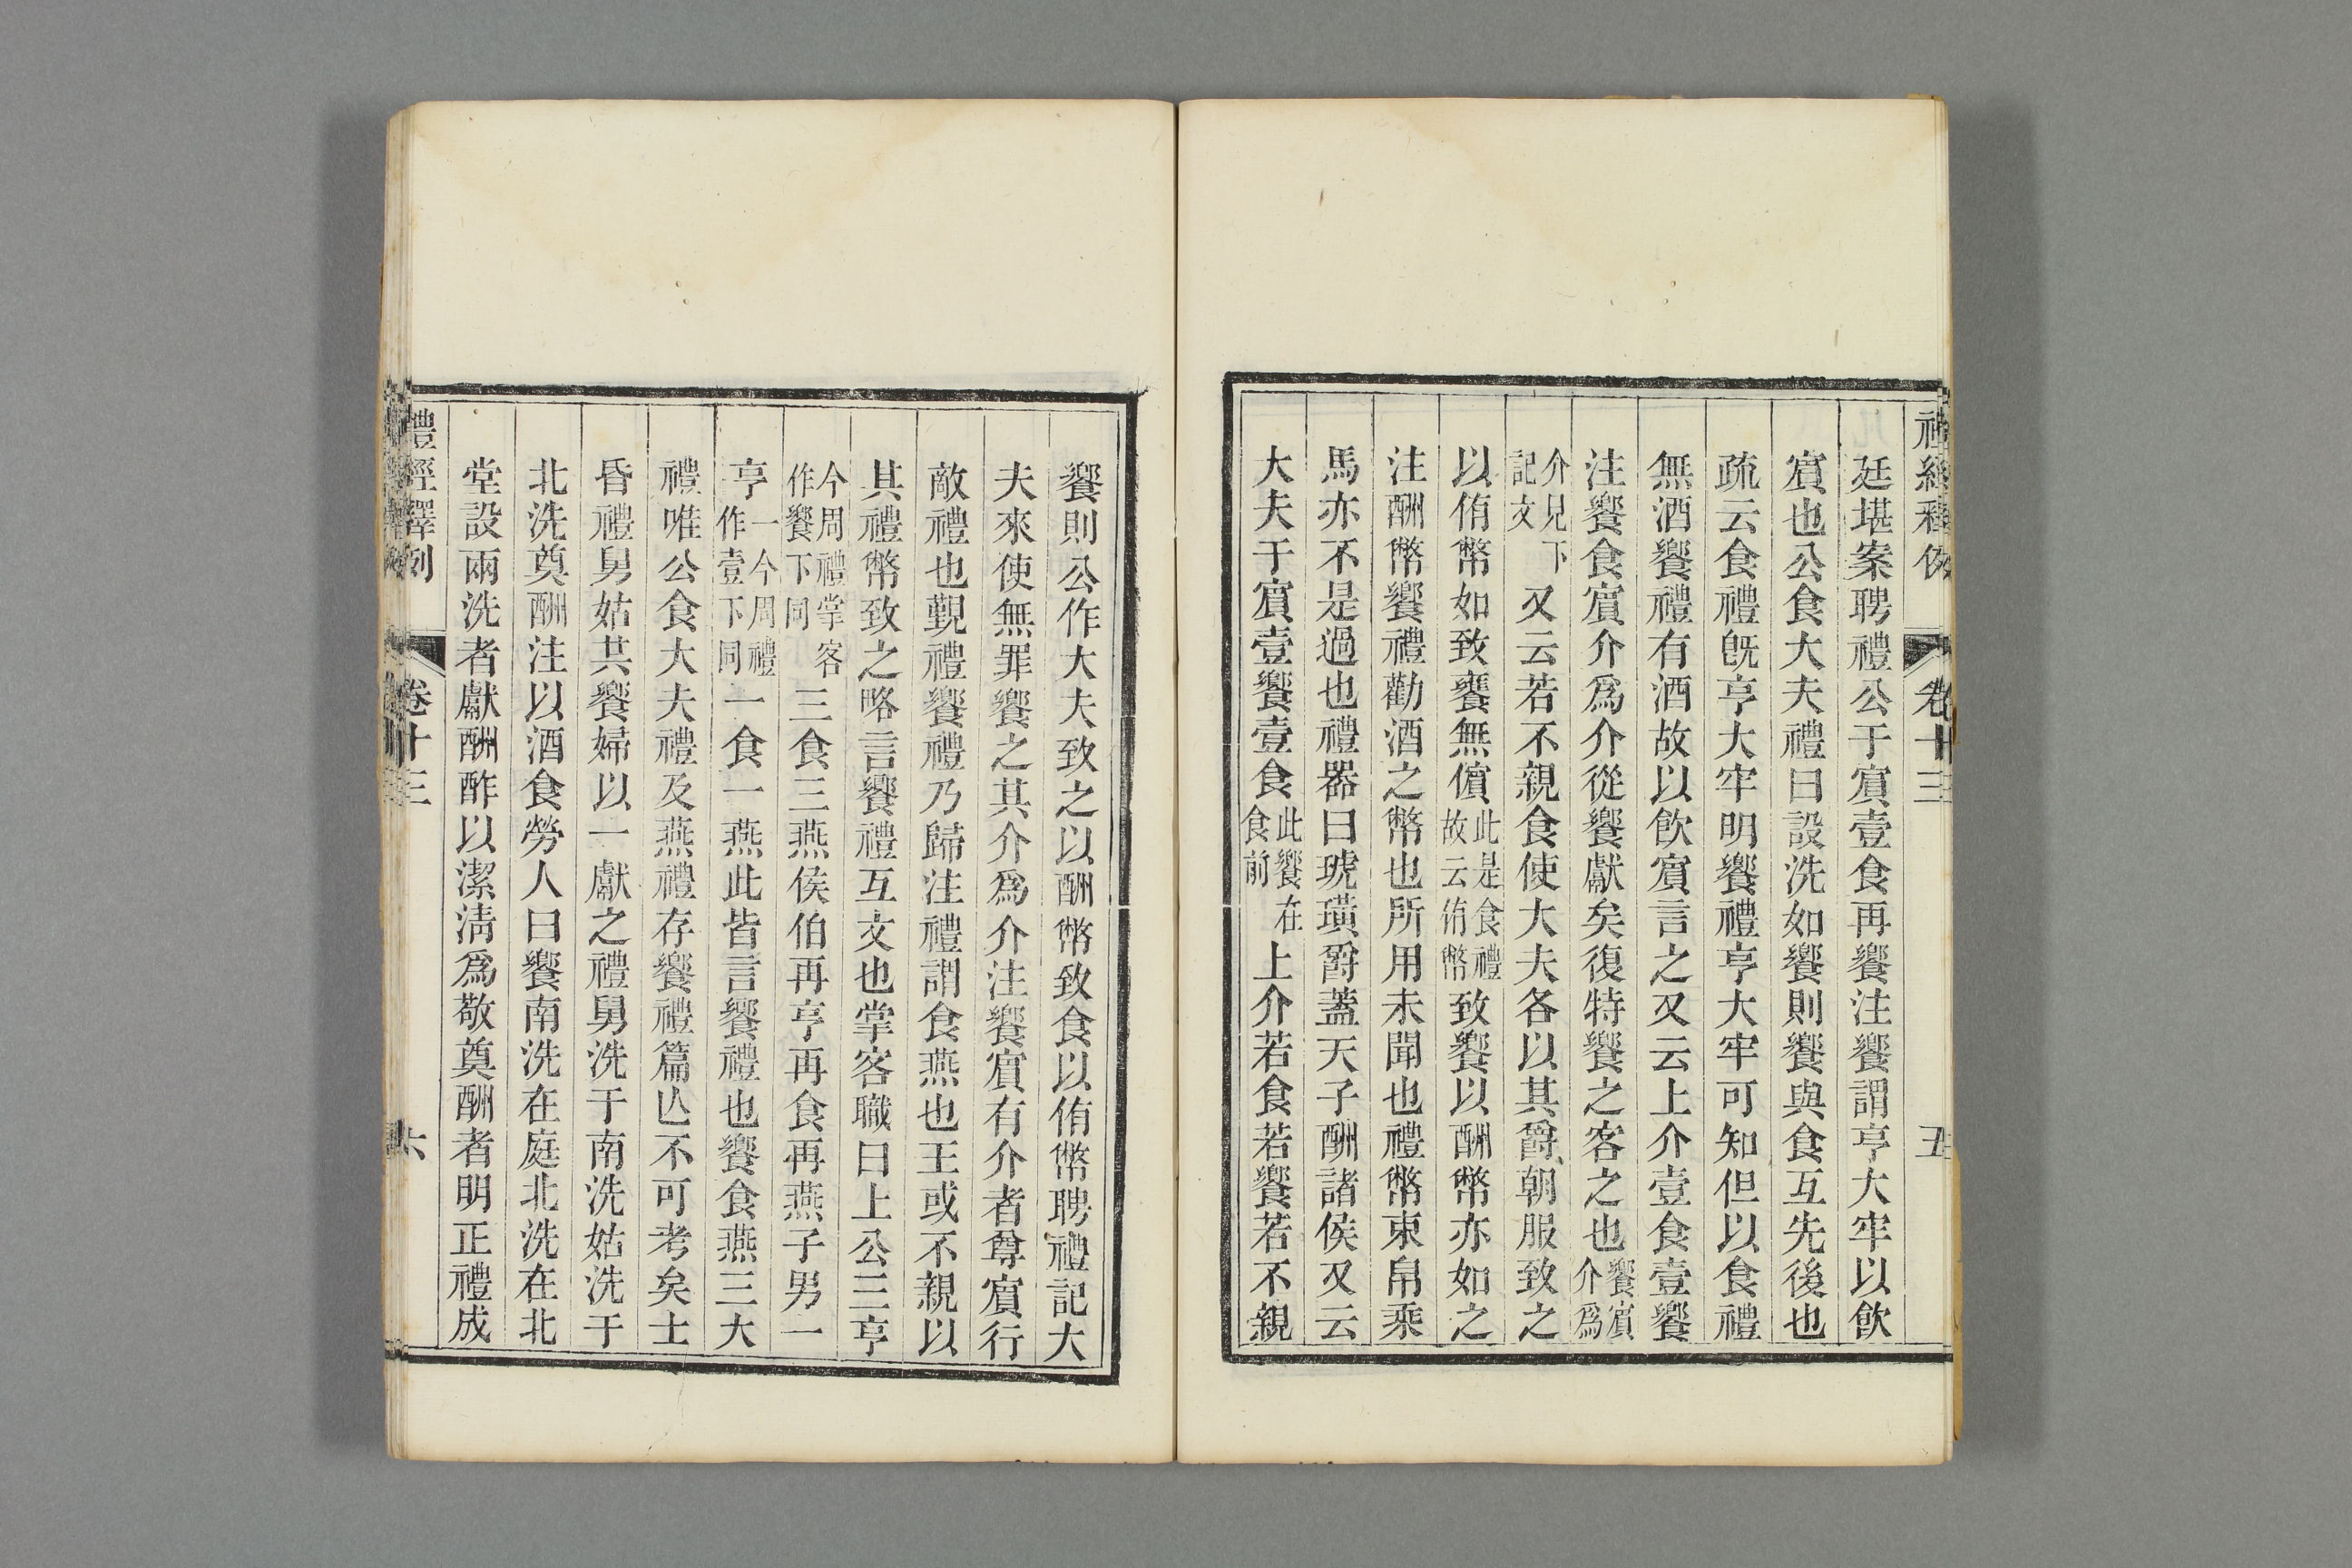 禮經釋例　卷十三　五
廷堪案聘禮公于賓壹食再饗注饗謂亨大牢以飮
賓也公食大夫禮曰設洗如饗則饗與食互先後也
疏云食禮旣亨大牢明饗禮亨大牢可知但以食禮
無酒饗禮有酒故以飮賓言之又云上介壹食壹饗
注饗食賓介爲介從饗獻矣復特饗之客之也饗賓介爲
介見下記文又云若不親食使大夫各以其爵朝服致之
以侑幣如致饔無儐此是食禮故云侑幣致饗以酬幣亦如之
注酬幣饗禮勸酒之幣也所用未聞也禮幣束帛乘
馬亦不是過也禮器曰琥璜爵蓋天子酬諸侯又云
大夫于賓壹饗壹食此饗在食前上介若食若饗若不親
饗則公作大夫致之以酬幣致食以侑幣聘禮記大
夫來使無罪饗之其介爲介注饗賓有介者尊賓行
敵禮也覲禮饗禮乃歸注禮謂食燕也王或不親以
其禮幣致之略言饗禮互文也掌客職曰上公三亨
今周禮掌客作饗下同三食三燕侯伯再亨再食再燕子男一
亨一今周禮作壹下同一食一燕此皆言饗禮也饗食燕三大
禮唯公食大夫禮及燕禮存饗禮篇亾不可考矣士
昏禮舅姑共饗婦以一獻之禮舅洗于南洗姑洗于
北洗奠酬注以酒食勞人曰饗南洗在庭北洗在北
堂設兩洗者獻酬酢以潔淸爲敬奠酬者明正禮成
禮經釋例　卷十三　六